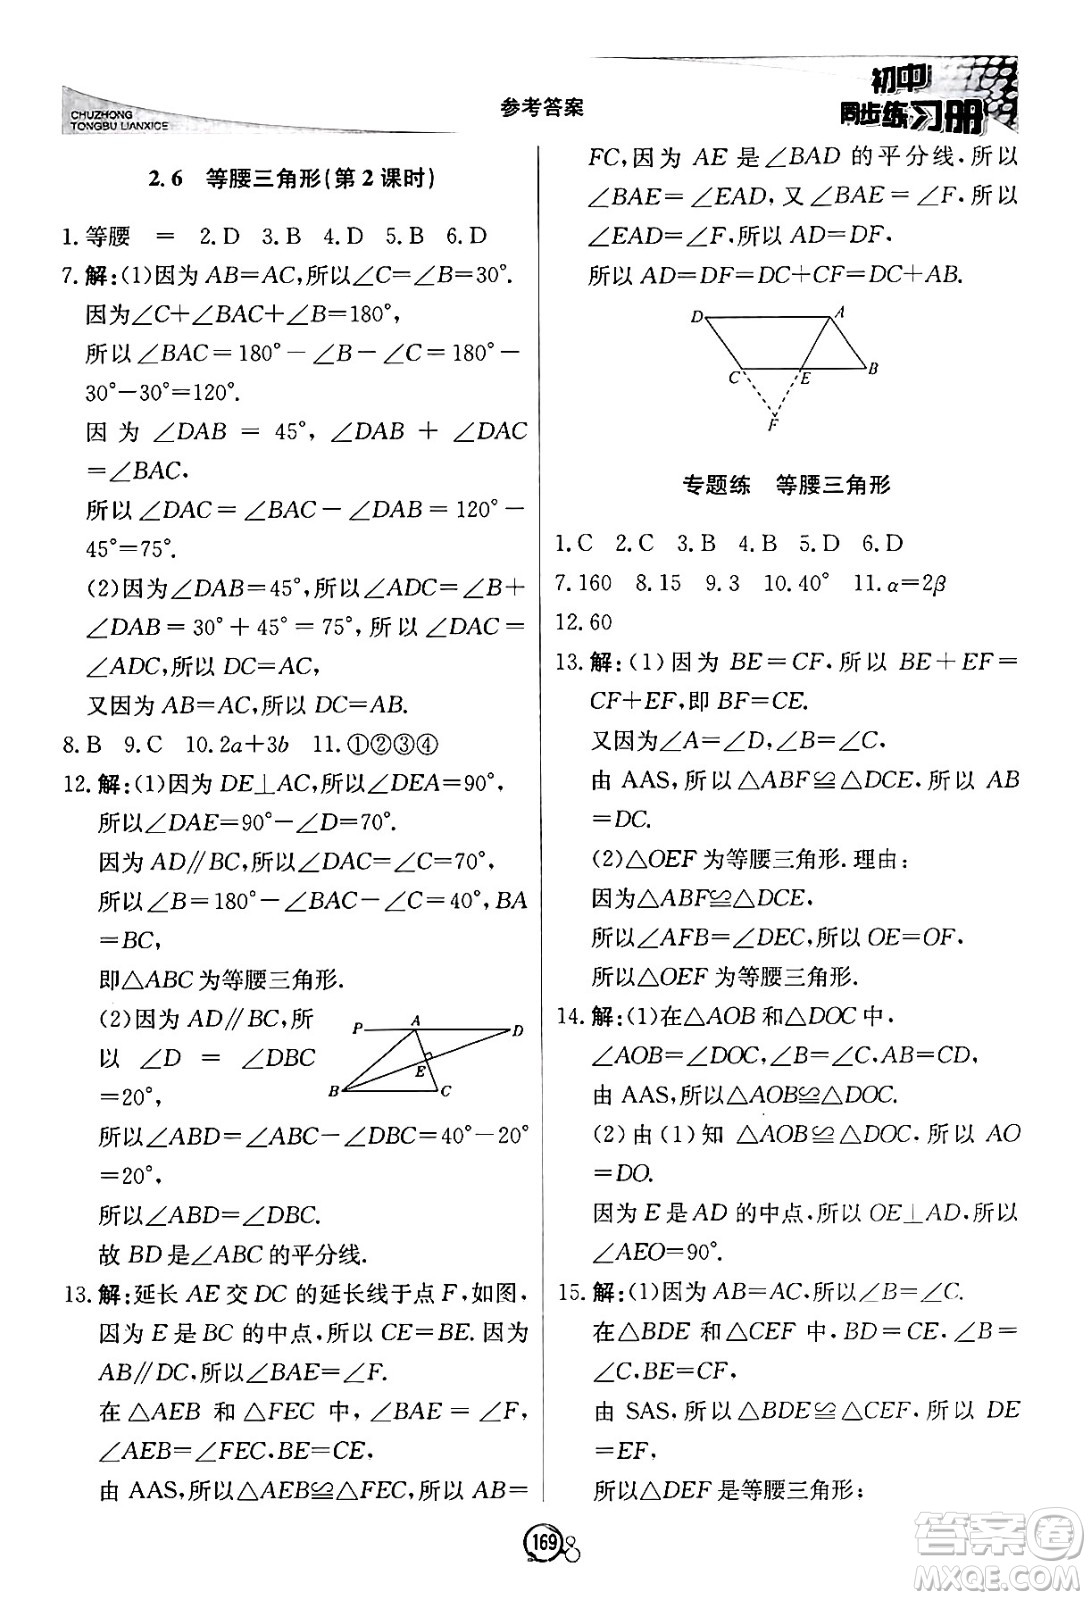 CHUZHONG
TONGBU LIANXICE
参考答案
初中
同步练习册
2.6 等腰三角形(第2课时)
1.等腰 = 2.D 3.B 4.D 5.B 6.D
7.解:(1)因为AB=AC,所以∠C=∠B=30°.
因为∠C+∠BAC+∠B=180°,
所以∠BAC=180°-∠B-∠C=180°-
30°-30°=120°.
因为∠DAB=45°,∠DAB+∠DAC
=∠BAC,
所以∠DAC=∠BAC-∠DAB=120°-
45°=75°.
(2)因为∠DAB=45°,所以∠ADC=∠B+
∠DAB=30°+45°=75°,所以∠DAC=
∠ADC,所以DC=AC,
又因为AB=AC,所以DC=AB.
8.B 9.C 10.2a+3b 11.①②③④
12.解:(1)因为DE⊥AC,所以∠DEA=90°,
所以∠DAE=90°-∠D=70°.
因为AD∥BC,所以∠DAC=∠C=70°,
所以∠B=180°-∠BAC-∠C=40°,BA
=BC,
即△ABC为等腰三角形.
(2)因为AD∥BC,所
以∠D=∠DBC
=20°,
P A D
E
B C
所以∠ABD=∠ABC-∠DBC=40°-20°
=20°,
所以∠ABD=∠DBC.
故BD是∠ABC的平分线.
13.解:延长AE交DC的延长线于点F,如图,
因为E是BC的中点,所以CE=BE.因为
AB∥DC,所以∠BAE=∠F.
在△AEB和△FEC中,∠BAE=∠F,
∠AEB=∠FEC,BE=CE,
由AAS,所以△AEB≌△FEC,所以AB=
FC,因为AE是∠BAD的平分线,所以
∠BAE=∠EAD,又∠BAE=∠F,所以
∠EAD=∠F,所以AD=DF,
所以AD=DF=DC+CF=DC+AB.
D A
C E B
F
专题练 等腰三角形
1.C 2.C 3.B 4.B 5.D 6.D
7.160 8.15 9.3 10.40° 11.α=2β
12.60
13.解:(1)因为BE=CF,所以BE+EF=
CF+EF,即BF=CE.
又因为∠A=∠D,∠B=∠C,
由AAS,所以△ABF≌△DCE,所以AB
=DC.
(2)△OEF为等腰三角形.理由:
因为△ABF≌△DCE,
所以∠AFB=∠DEC,所以OE=OF,
所以△OEF为等腰三角形.
14.解:(1)在△AOB和△DOC中,
∠AOB=∠DOC,∠B=∠C,AB=CD,
由AAS,所以△AOB≌△DOC.
(2)由(1)知△AOB≌△DOC,所以AO
=DO.
因为E是AD的中点,所以OE⊥AD,所以
∠AEO=90°.
15.解:(1)因为AB=AC,所以∠B=∠C.
在△BDE和△CEF中,BD=CE,∠B=
∠C,BE=CF,
由SAS,所以△BDE≌△CEF,所以DE
=EF,
所以△DEF是等腰三角形;
169
答案卷